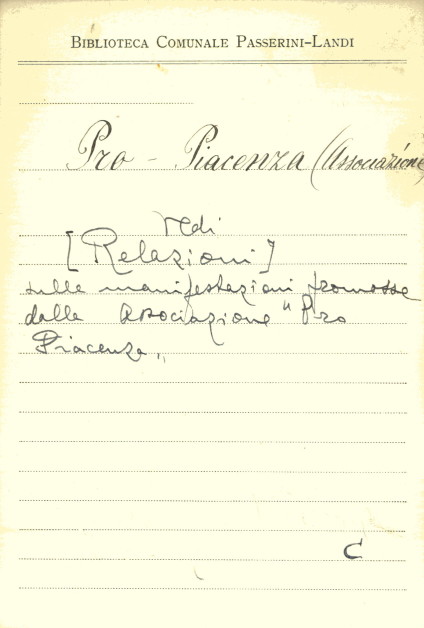 BIBLIOTECA COMUNALE PASSERINI-LANDI
Pro - Piacenza (Associazione
Vedi
[Relazioni]
sulle manifestazioni promosse
dalla Associazione "Pro
Piacenza„
C